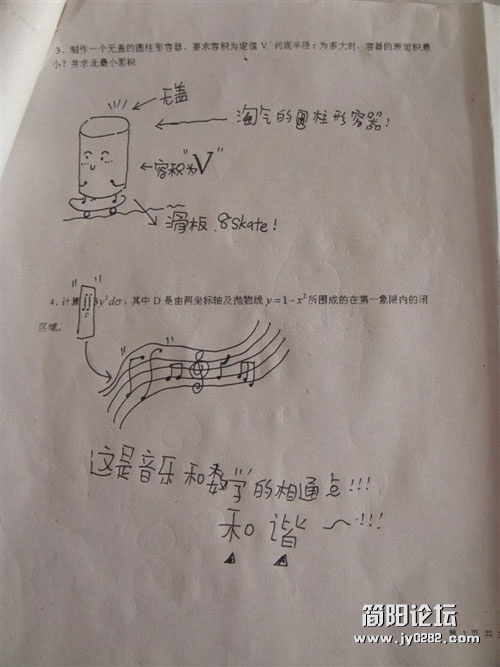 3、制作一个无盖的圆柱形容器，要求容积为定值 V，问底半径 r 为多大时，容器的表面积最
小？并求此最小面积.
无盖
淘气的圆柱形容器!
容积为"V"
滑板.Skate!
4、计算 y²dσ，其中 D 是由两坐标轴及抛物线 y=1-x² 所围成的在第一象限内的闭
区域。
这是音乐和数学的相通点!!!
和谐~!!!
简阳论坛
www.jy0282.com